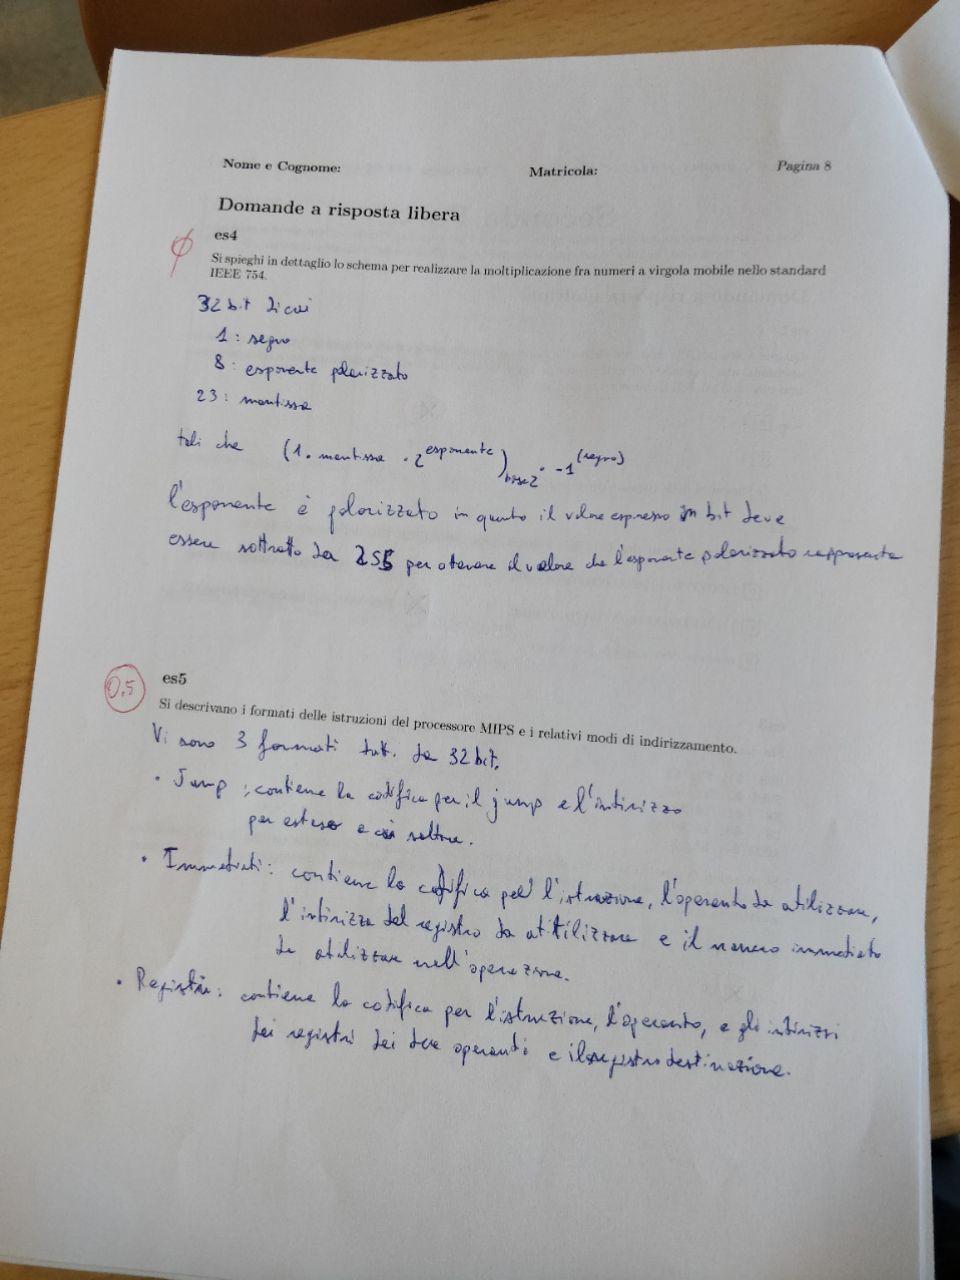 Nome e Cognome: Matricola: Pagina 8
Domande a risposta libera
es4
Si spieghi in dettaglio lo schema per realizzare la moltiplicazione fra numeri a virgola mobile nello standard
IEEE 754.
32 bit di cui
1 : segno
8 : esponente polarizzato
23 : mantissa
tali che (1. mantissa · 2^esponente)base2 · -1^(segno)
l'esponente è polarizzato in quanto il valore espresso in bit deve
essere sottratto da 255 per ottenere il valore che l'esponente polarizzato rappresenta
0,5
es5
Si descrivano i formati delle istruzioni del processore MIPS e i relativi modi di indirizzamento.
Vi sono 3 formati tutti da 32 bit.
· Jump : contiene la codifica per il jump e l'indirizzo
per esteso a cui saltare.
· Immediati : contiene la codifica per l'istruzione, l'operando da utilizzare,
l'indirizzo del registro da utilizzare e il numero immediato
da utilizzare nell'operazione.
· Registri : contiene la codifica per l'istruzione, l'operando, e gli indirizzi
dei registri dei due operandi e il registro destinazione.